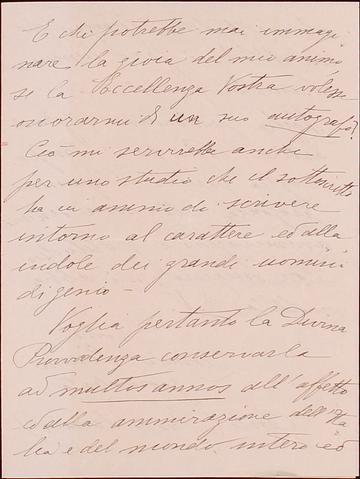 E chi potrebbe mai immagi
nare la gioia del mio animo
se la Eccellenza Vostra volesse
onorarmi di un suo autografo?
Ciò mi servirebbe anche
per uno studio che il sottoscritto
ha in animo di scrivere
intorno al carattere ed alla
indole dei grandi uomini
di genio —
Voglia pertanto la Divina
Provvidenza conservarla
ad multos annos all'affetto
ed alla ammirazione dell'Ita
lia e del mondo intero ed